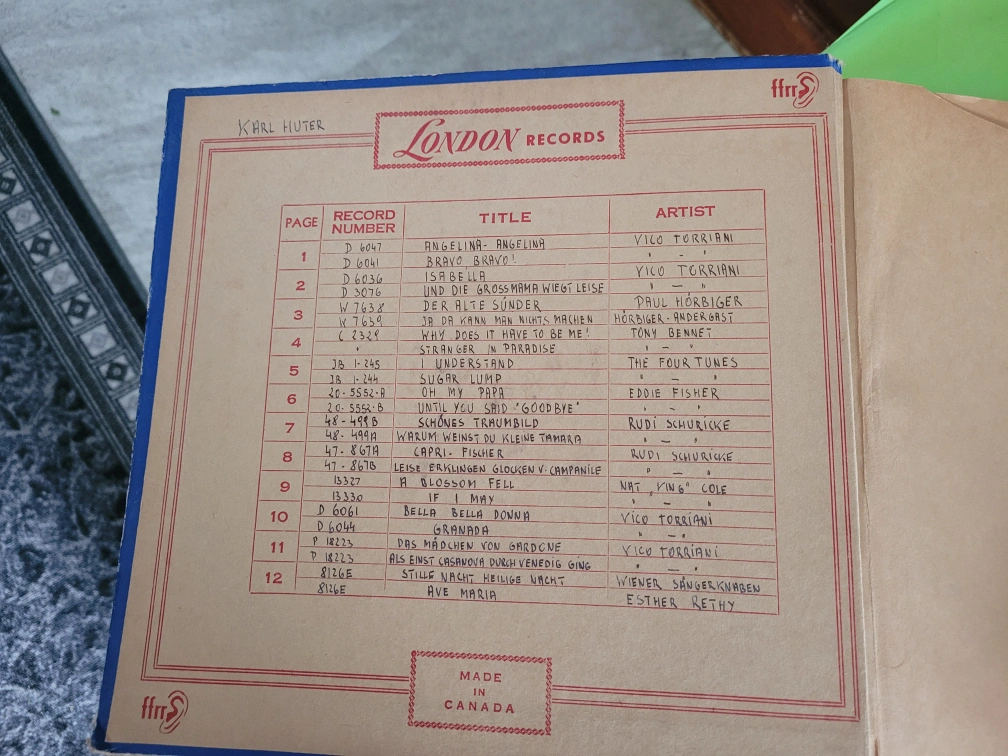 ffrr
KARL HUTER
LONDON RECORDS
PAGE RECORD NUMBER TITLE ARTIST
1 D 6047 ANGELINA - ANGELINA VICO TORRIANI
D 6041 BRAVO, BRAVO! " - "
2 D 6036 ISABELLA VICO TORRIANI
D 3076 UND DIE GROSSMAMA WIEGT LEISE " - "
3 W 7638 DER ALTE SÜNDER PAUL HÖRBIGER
W 7639 JA DA KANN MAN NICHTS MACHEN HÖRBIGER - ANDERGAST
4 C 2329 WHY DOES IT HAVE TO BE ME! TONY BENNET
" STRANGER IN PARADISE " - "
5 JB 1-245 I UNDERSTAND THE FOUR TUNES
JB 1-244 SUGAR LUMP " - "
6 20-5552-A OH MY PAPA EDDIE FISHER
20-5552-B UNTIL YOU SAID "GOODBYE" " - "
7 48-499B SCHÖNES TRAUMBILD RUDI SCHURICKE
48-499A WARUM WEINST DU KLEINE TAMARA " - "
8 47-867A CAPRI - FISCHER RUDI SCHURICKE
47-867B LEISE ERKLINGEN GLOCKEN V. CAMPANILE " - "
9 13327 A BLOSSOM FELL NAT "KING" COLE
13330 IF I MAY " - "
10 D 6061 BELLA BELLA DONNA VICO TORRIANI
D 6044 GRANADA " - "
11 P 18223 DAS MÄDCHEN VON GARDONE VICO TORRIANI
P 18223 ALS EINST CASANOVA DURCH VENEDIG GING " - "
12 8126E STILLE NACHT HEILIGE NACHT WIENER SÄNGERKNABEN
8126E AVE MARIA ESTHER RETHY
MADE
IN
CANADA
ffrr